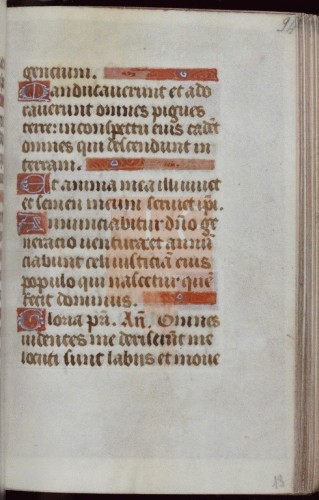 94
gencium.
Manducauerunt et ado
rauerunt omnes pigues
terre: in conspectu eius cadet
omnes qui descendunt in
terram.
Et anima mea illi uiuet
et semen meum seruiet ipi.
Annunciabitur dno ge
neracio uentura: et annū
ciabunt celi iusticiā eius
populo qui nascetur quē
fecit dominus.
Gloria pri. An. Omnes
uidentes me deriserūt me
locuti sunt labiis et moue
13